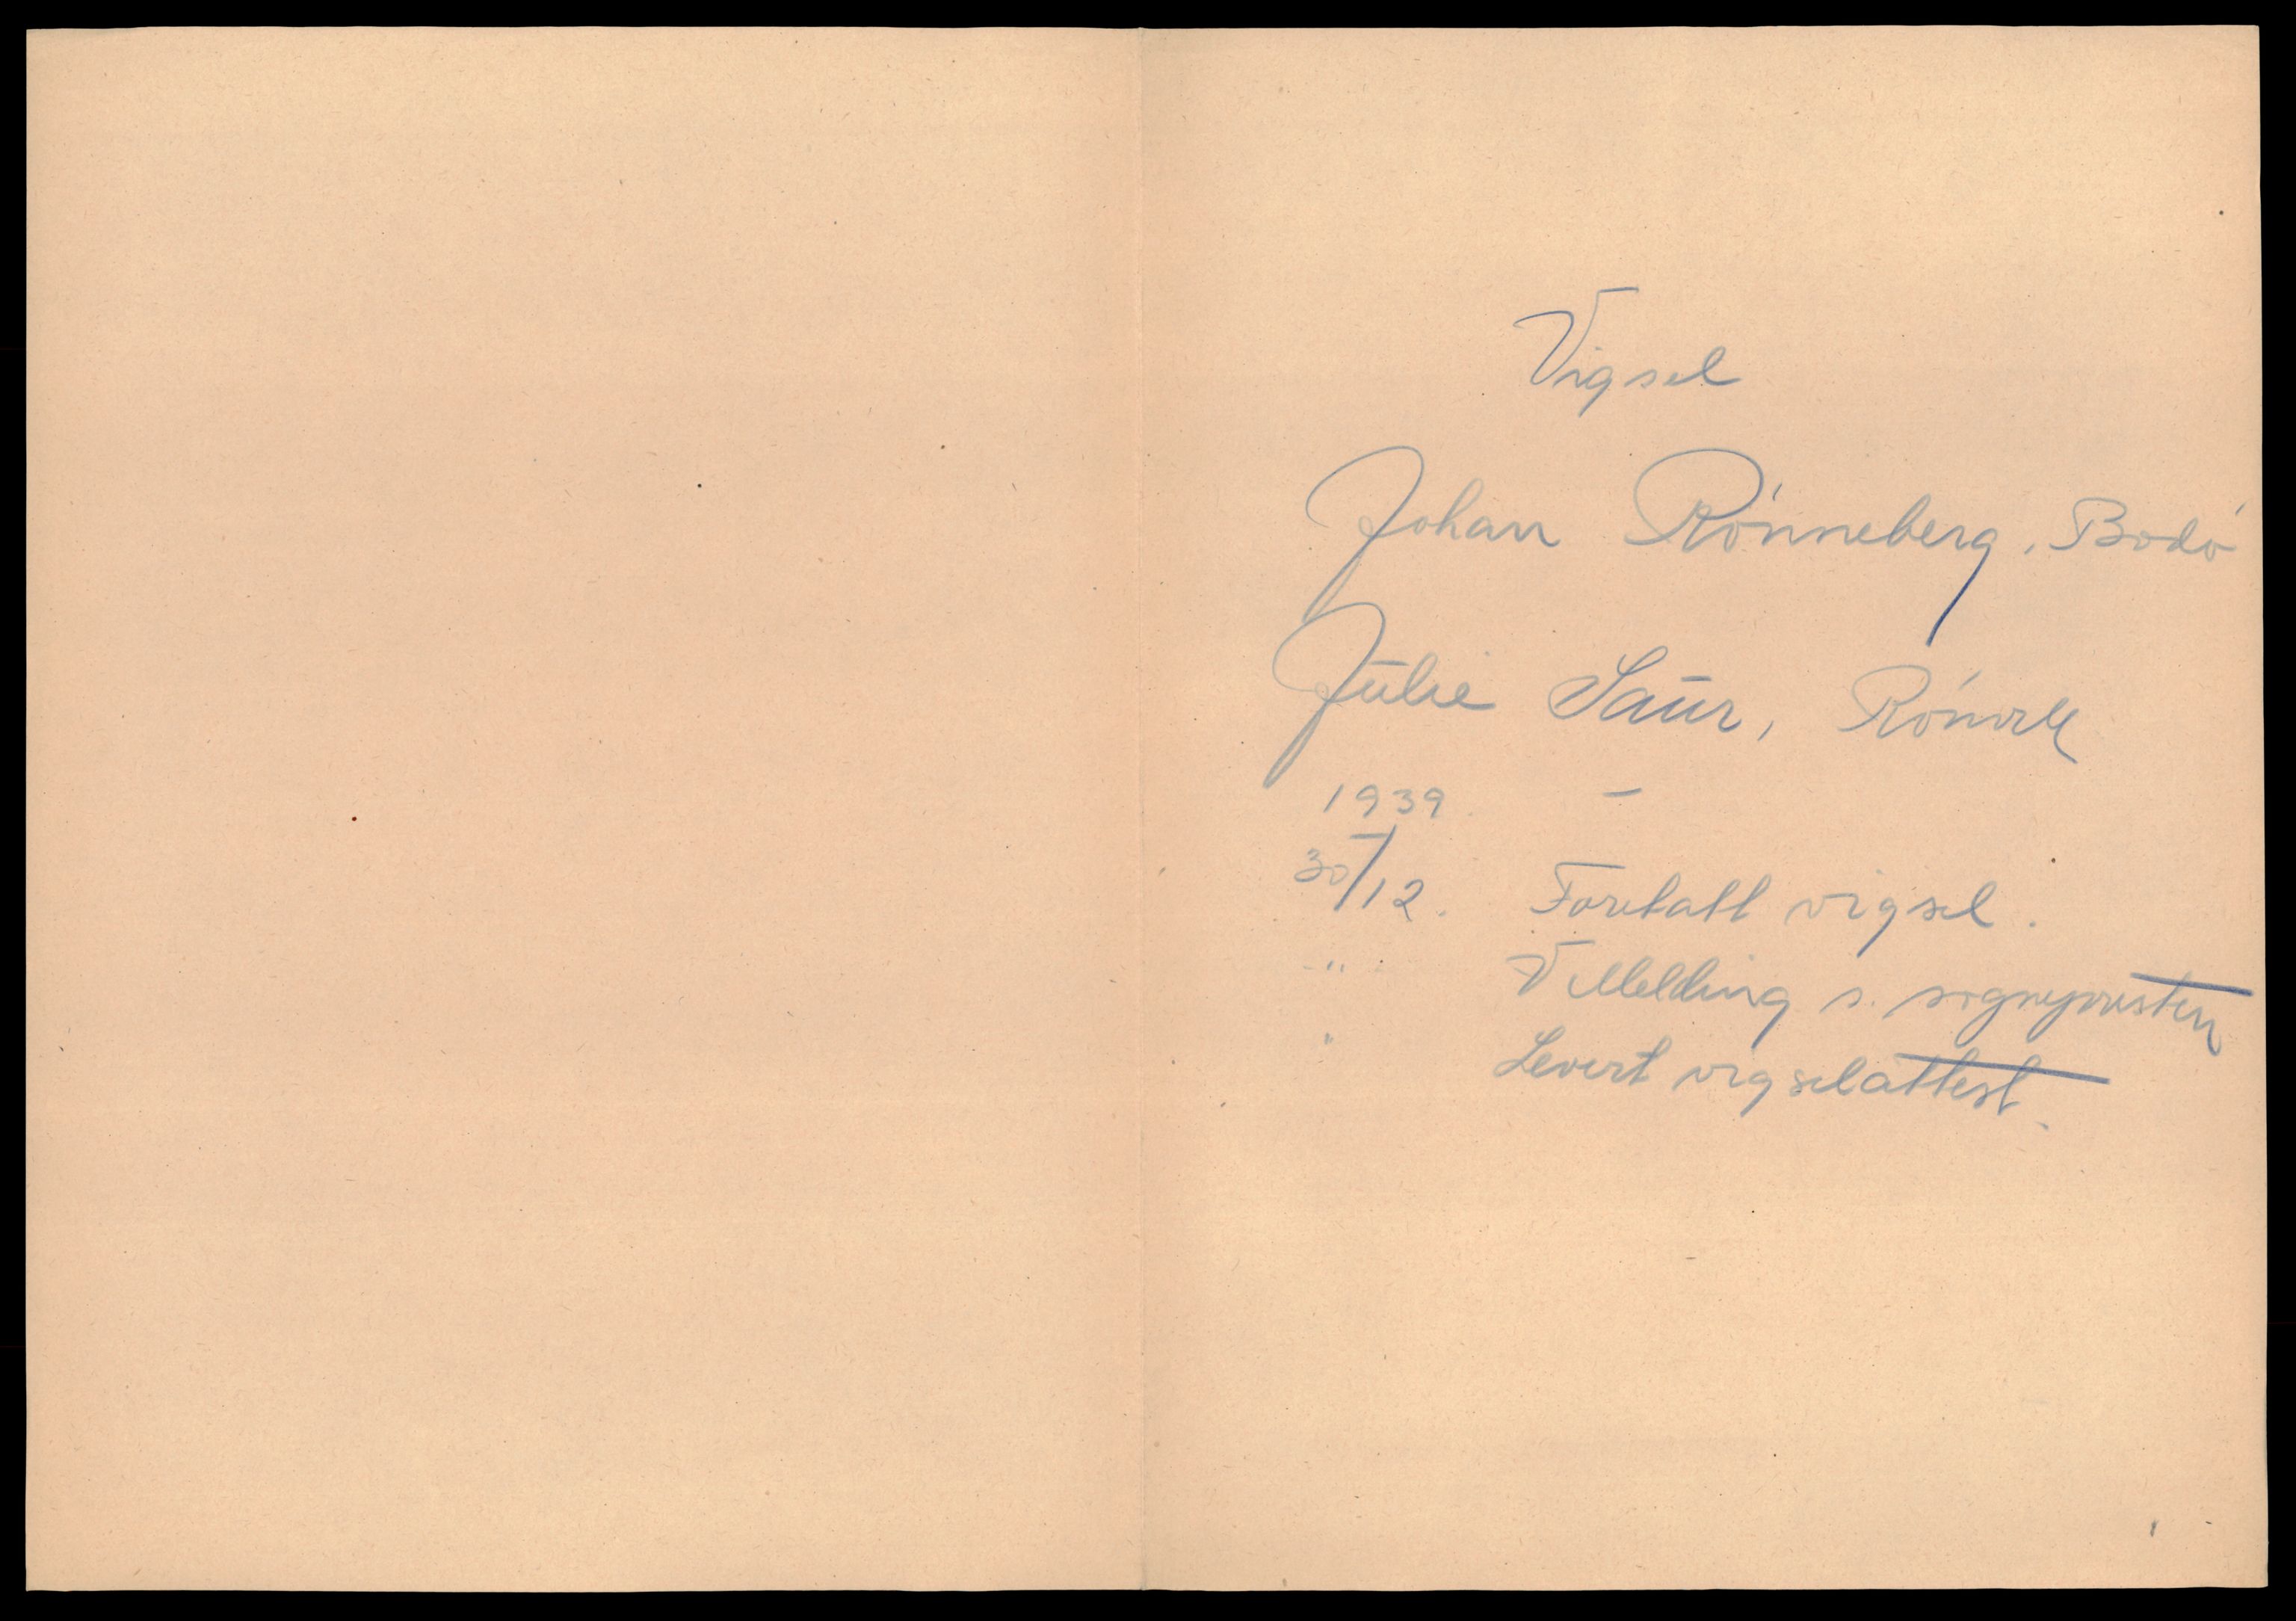 Vigsel
Johan Rønneberg, Bodø
Julie Saur, Rønvik
1939. —
30/12. Foretatt vigsel.
" V Melding s. sognepresten
" Levert vigselattest.